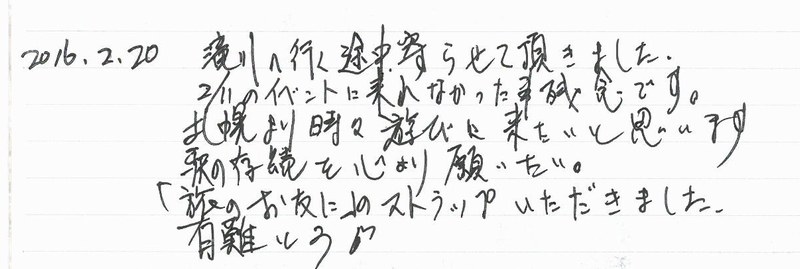 2016.2.20 滝川へ行く途中寄らせて頂きました.
2/11のイベントに来れなかった事残念です。
札幌より時々遊びに来たいと思います
駅の存続を心より願いたい。
「旅のお友に」のストラップいただきました.
有難とう